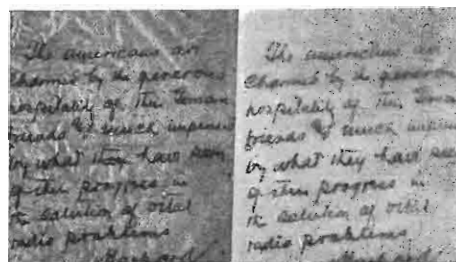 The americans are
charmed by the generous
hospitality of their German
friends & much impresse
by what they have seen
of their progress in
the solution of vital
radio problems
The americans are
charmed by the generous
hospitality of their German
friends & much impresse
by what they have seen
of their progress in
the solution of vital
radio problems